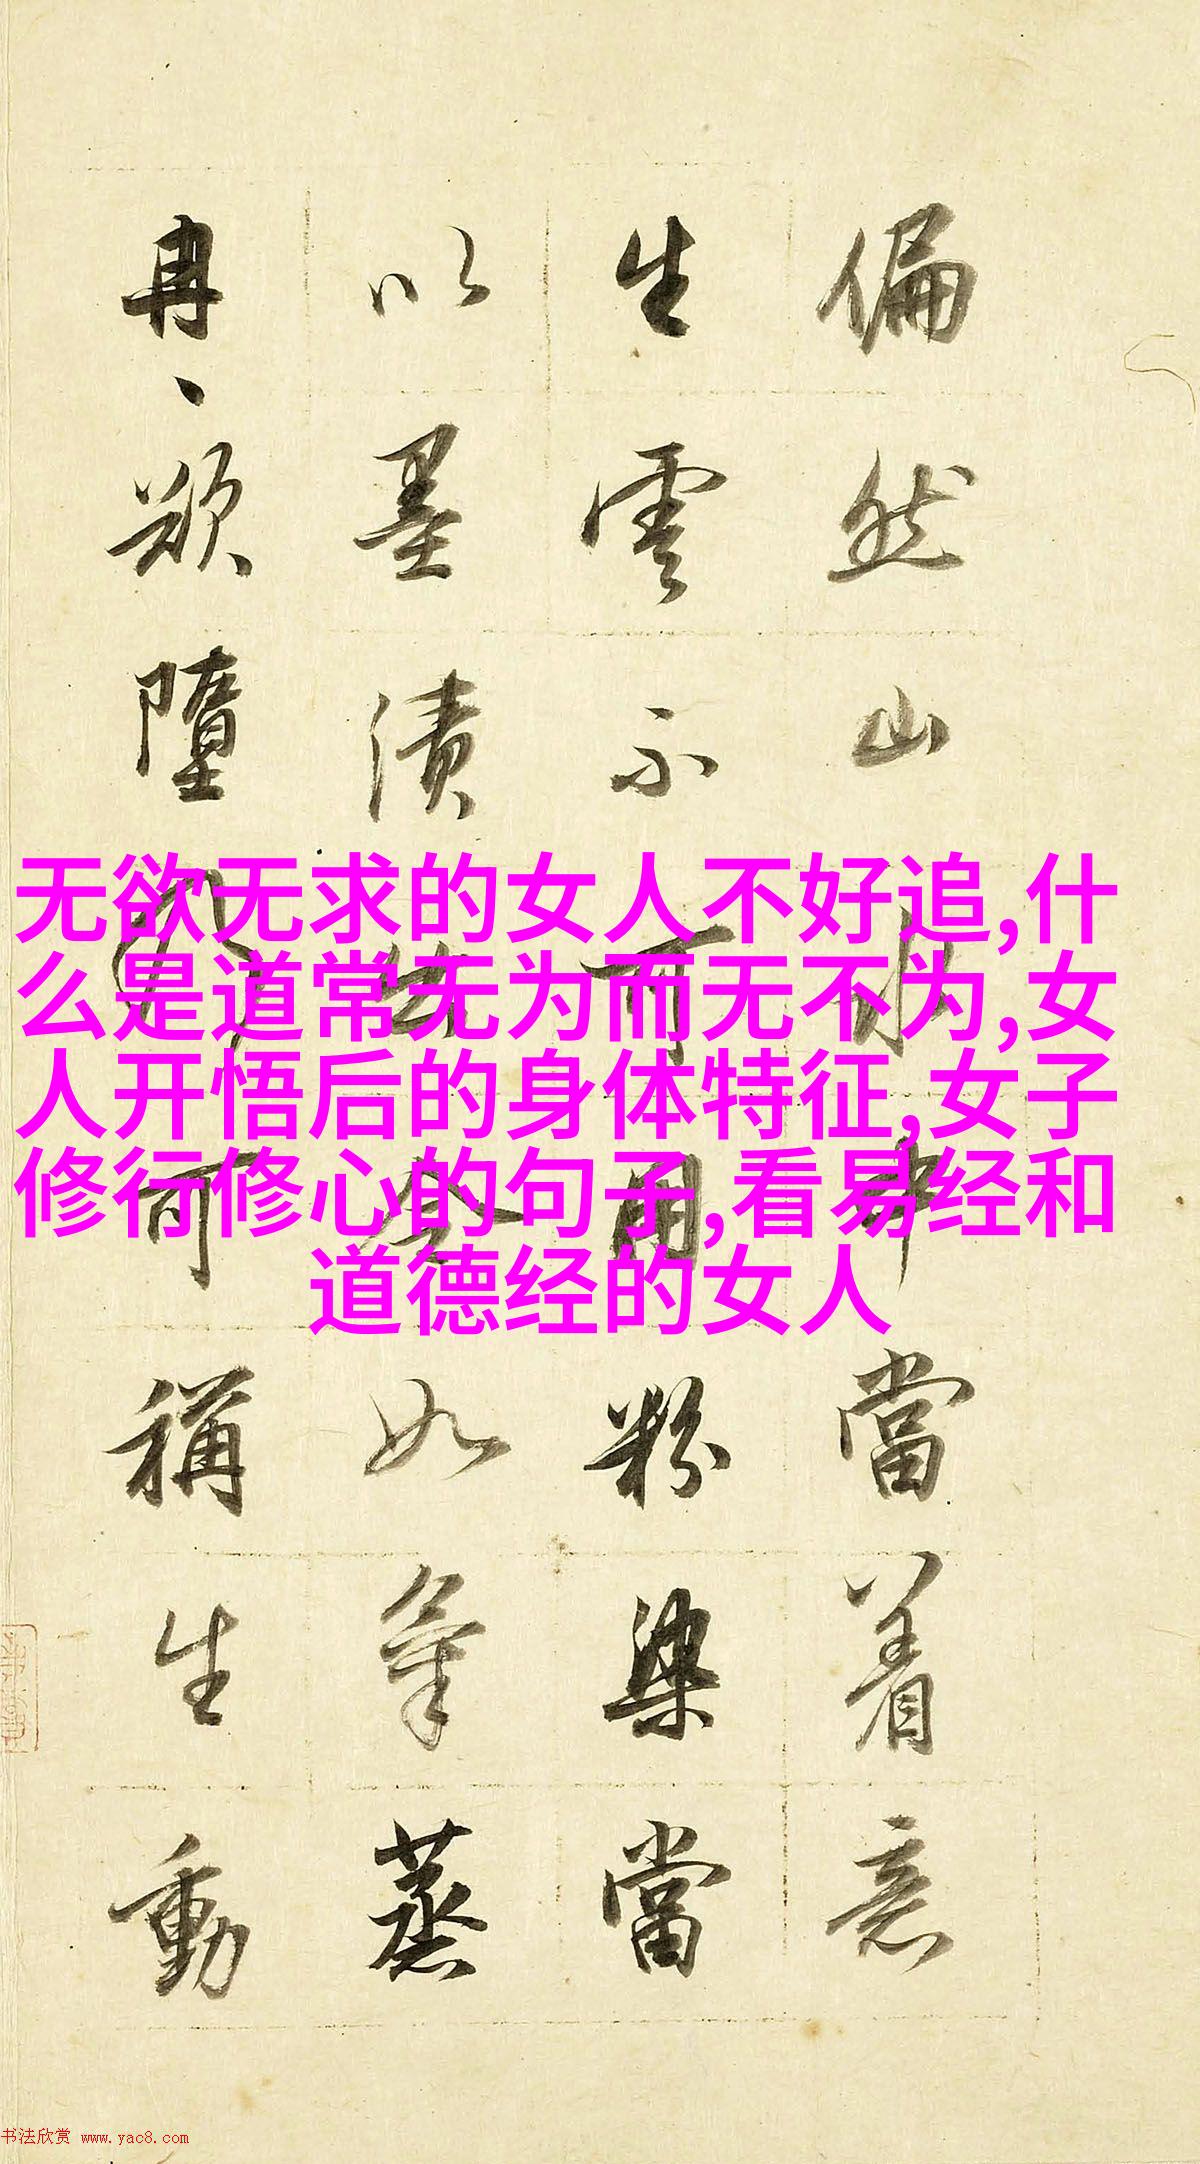 偏然山水中當着意
生雲不可用粉染當
以墨漬出令如氣蒸
冉、欲墮乃可稱生動
无欲无求的女人不好追,什
么是道常无为而无不为,女
人开悟后的身体特征,女子
修行修心的句子,看易经和
道德经的女人
书法欣赏 www.yac8.com